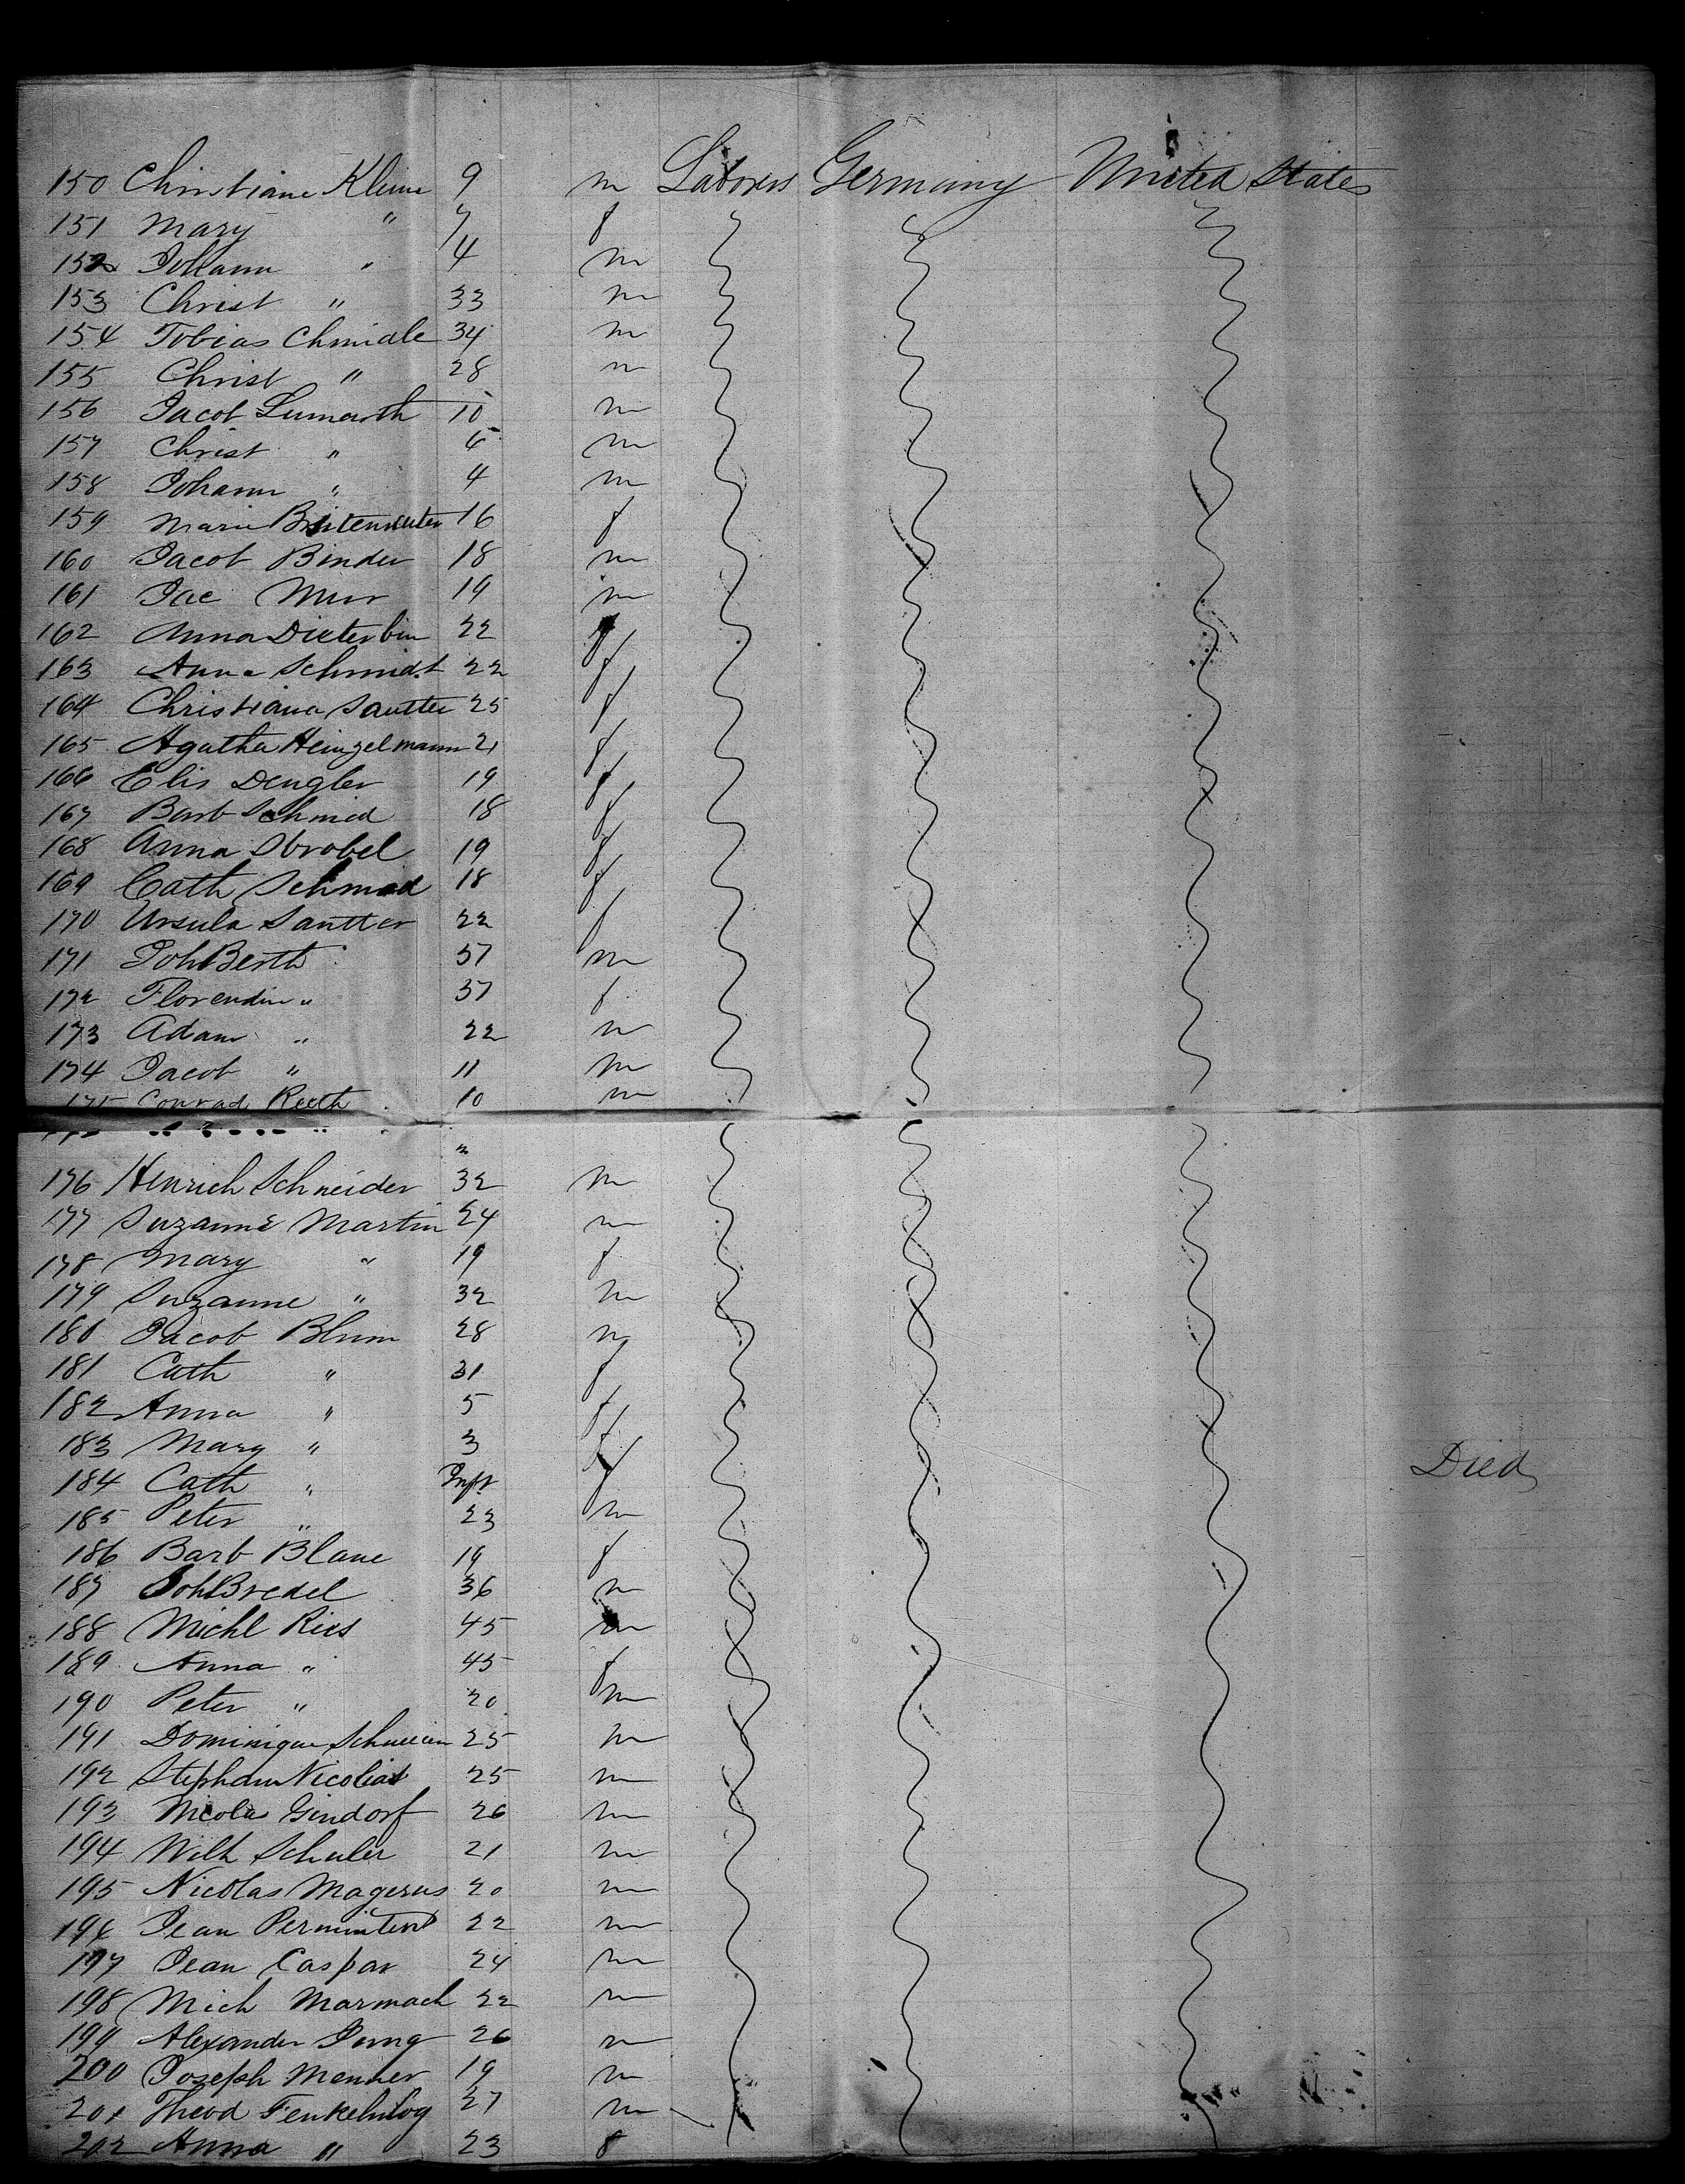 150 Christiane Kleine 9 m Laborers Germany United States
151 Mary " 7 f
152 Johann " 4 m
153 Christ " 33 m
154 Tobias Chmidle 34 m
155 Christ " 28 m
156 Jacob 10 m
157 Christ " 6 m
158 Johann " 4 m
159 Marie 16 f
160 Jacob Binder 18 m
161 Jac 19 m
162 Anna Dieterbin 22 f
163 Anna Schmidt 22 f
164 Christiana Sautter 25 f
165 Agatha Heinzelmann 21 f
166 Elis Dengler 19 f
167 Barb Schmid 18 f
168 Anna Strobel 19 f
169 Cath Schmid 18 f
170 Ursula Sautter 22 f
171 Joh Berth 57 m
172 Florendin " 37 f
173 Adam " 22 m
174 Jacob " 11 m
175 Conrad Reeth 10 m
176 Henrich Schneider 32 m
177 Suzanne Martin 24 m
178 Mary " 19 f
179 Suzanne " 32 m
180 Jacob Blum 28 m
181 Cath " 31 f
182 Anna " 5 f
183 Mary " 3 f
184 Cath " Inft f Died
185 Peter " 23 m
186 Barb Blane 19 f
187 Joh Bredel 36 m
188 Michl Ries 45 m
189 Anna " 45 f
190 Peter " 20 m
191 Dominique 25 m
192 Stephan 25 m
193 Nicolas Gindorf 26 m
194 Wilh Schuler 21 m
195 Nicolas Magerus 20 m
196 Jean 22 m
197 Jean Caspar 24 m
198 Mich Marmach 22 m
199 Alexander Jung 26 m
200 Joseph Menner 19 m
201 Theod 27 m
202 Anna " 23 f